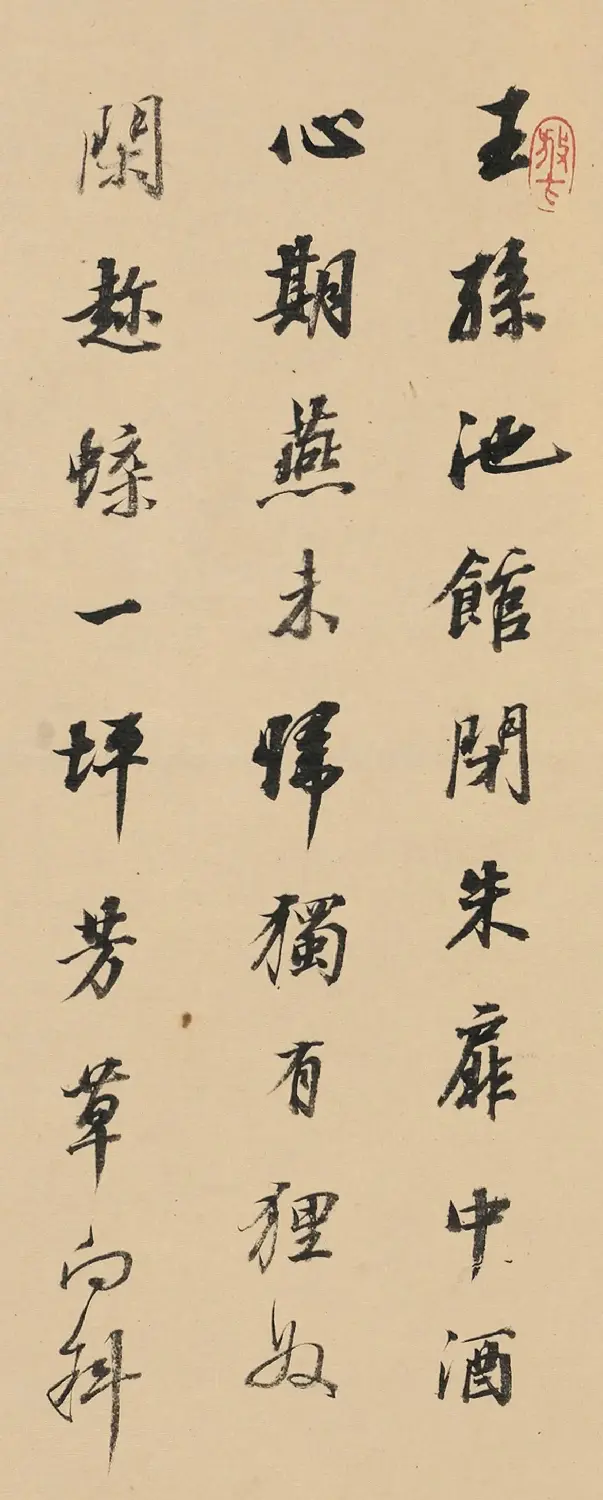 王孫池館閉朱扉中酒
心期燕未歸獨有狸奴
閑趂蝶一坪芳草向斜